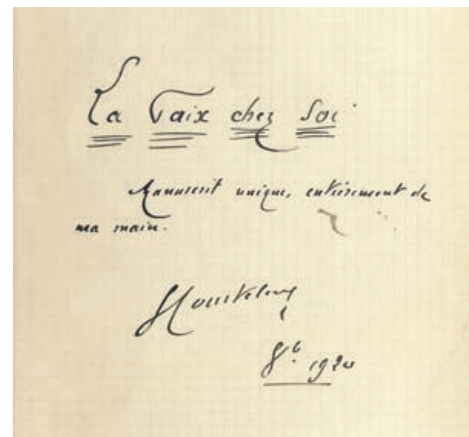 La Paix chez Soi
Manuscrit unique, entièrement de
ma main.
GCourteline
8b. 1920